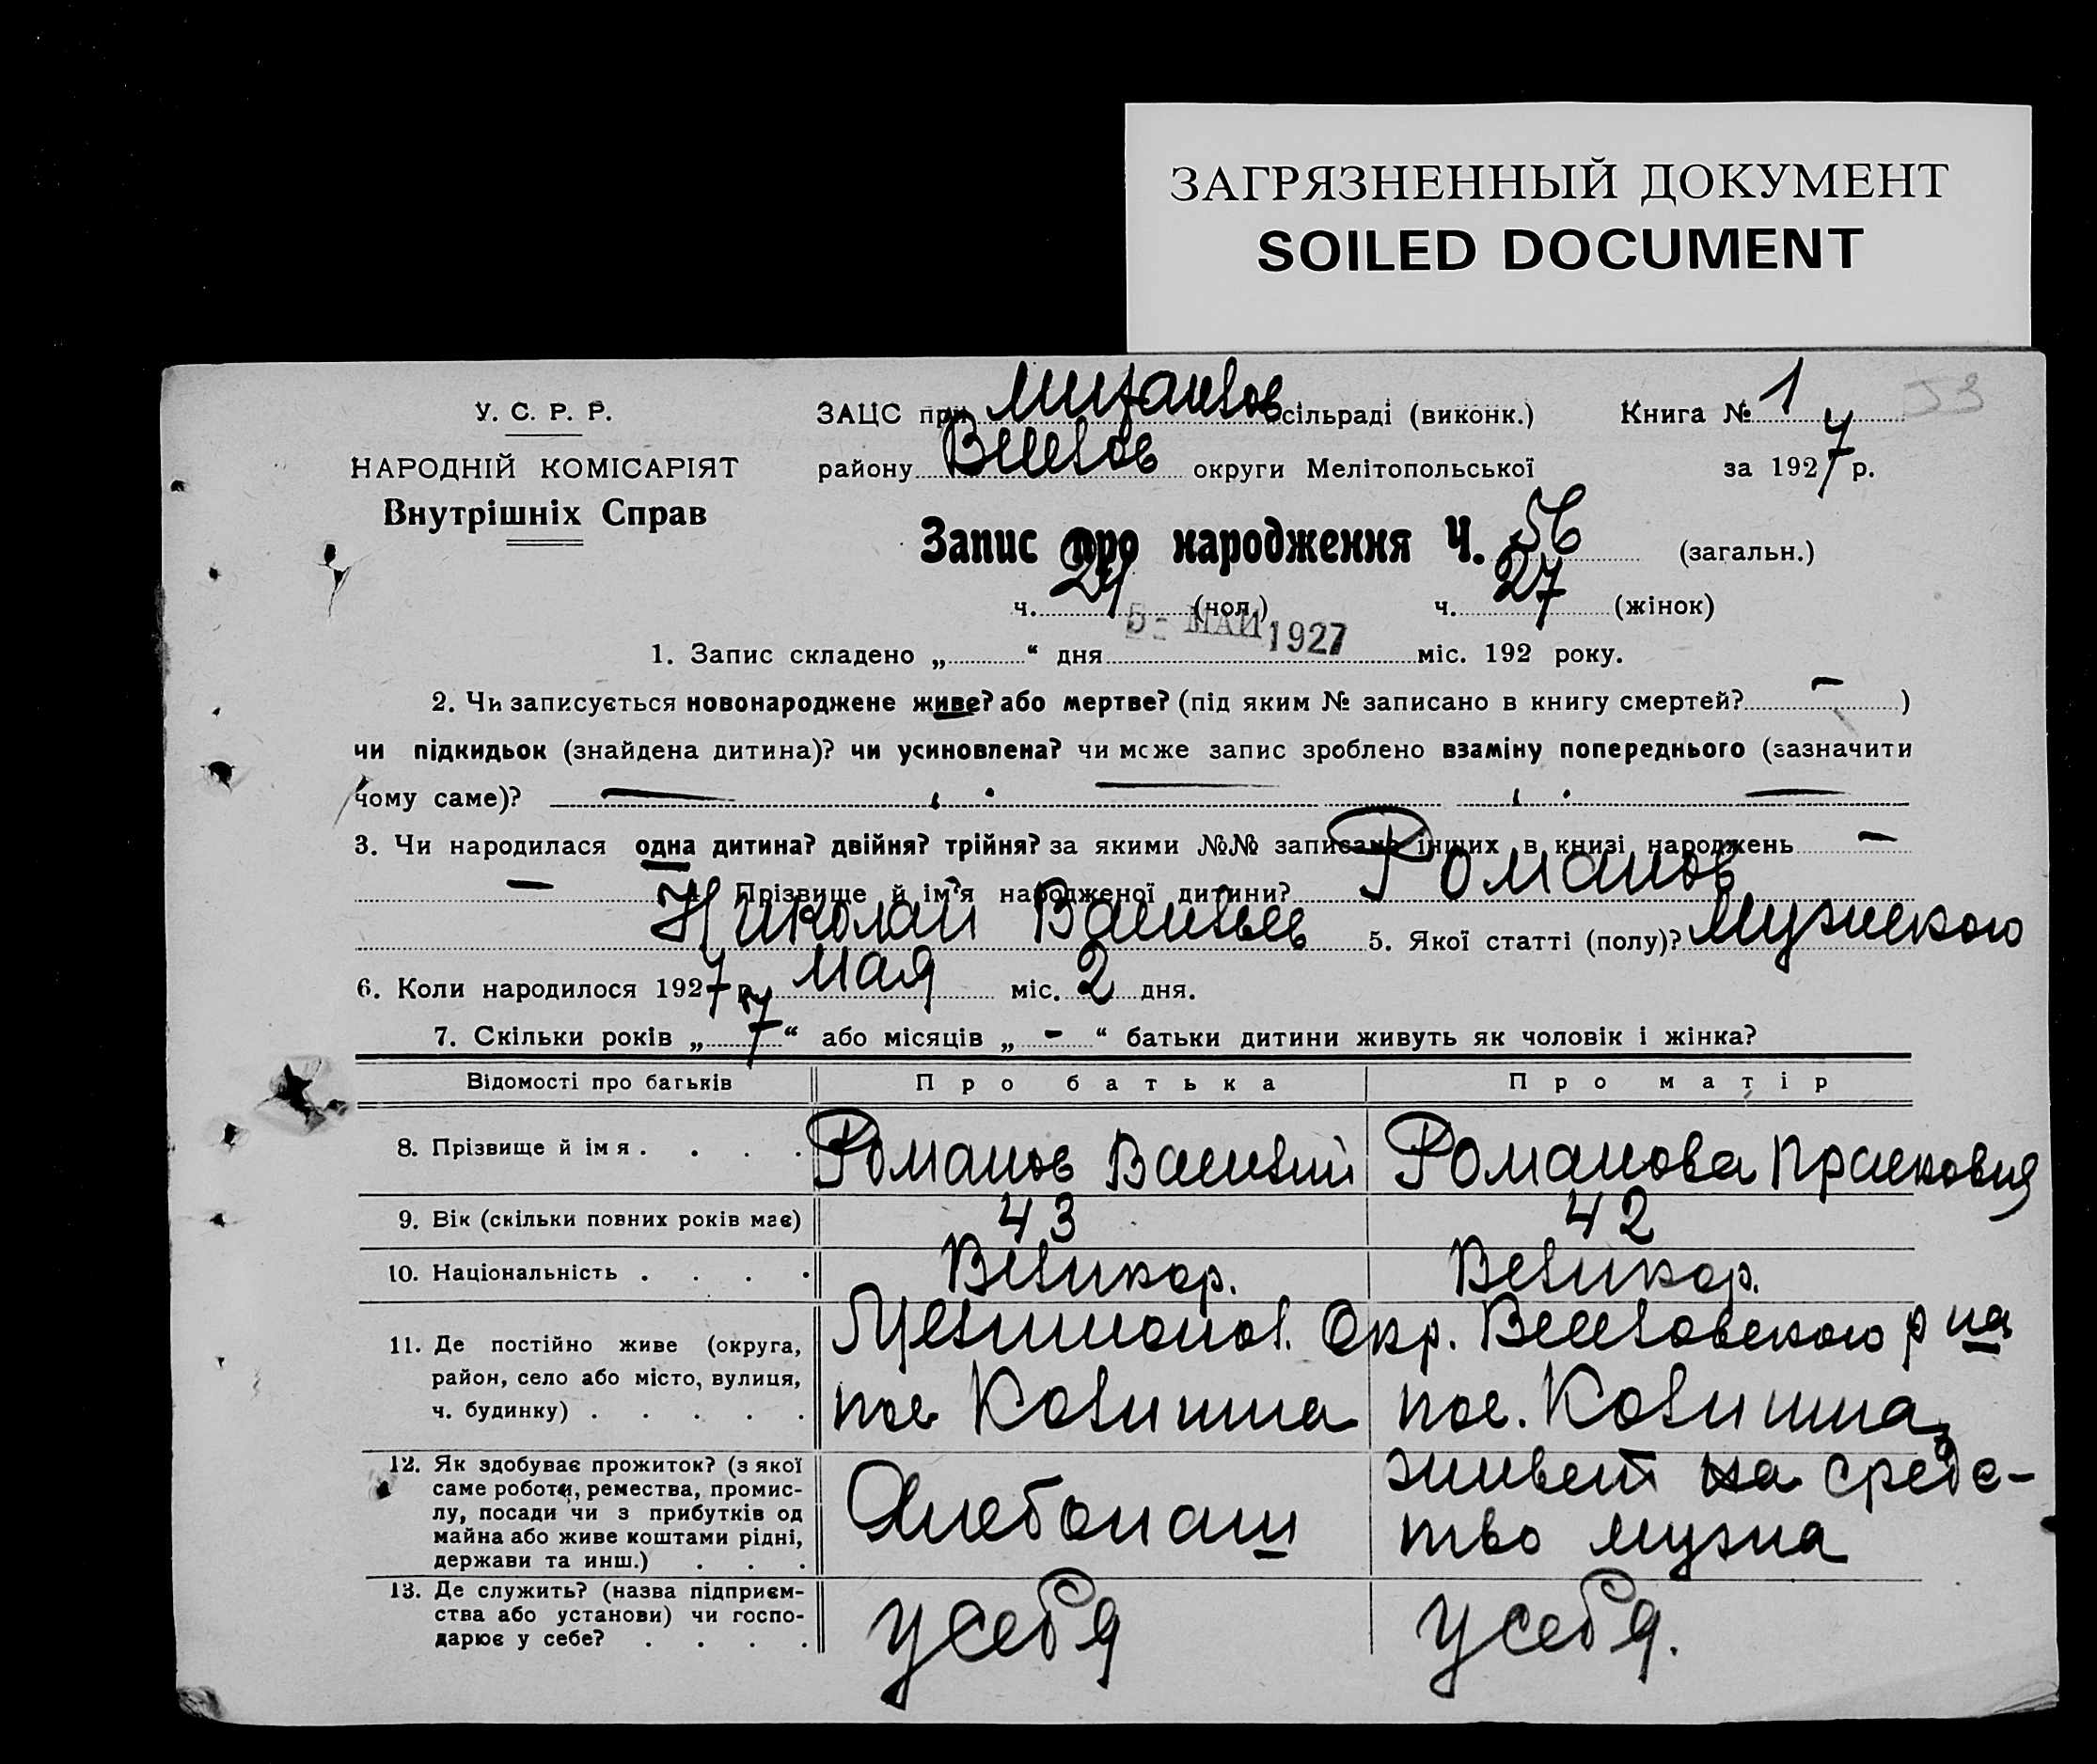 ЗАГРЯЗНЕННЫЙ ДОКУМЕНТ
SOILED DOCUMENT
У. С. Р. Р.
НАРОДНІЙ КОМІСАРІЯТ
Внутрішніх Справ
ЗАЦС при Михайлов сільраді (виконк.) Книга № 1 53
району Весело́в округи Мелітопольської за 1927 р.
Запис про народження Ч. 56 (загальн.)
ч. 29 (чол.) ч. 27 (жінок)
5 - МАЙ 1927
1. Запис складено „ “ дня міс. 192 року.
2. Чи записується новонароджене живе? або мертве? (під яким № записано в книгу смертей? — )
чи підкидьок (знайдена дитина)? чи усиновлена? чи може запис зроблено взаміну попереднього (зазначити
чому саме)?
3. Чи народилася одна дитина? двійня? трійня? за якими №№ записано інших в книзі народжень —
— 4. Прізвище й ім'я народженої дитини? Романов
Николай Васильев 5. Якої статті (полу)? Мужского
6. Коли народилося 1927 р. мая міс. 2 дня.
7. Скільки років „ 7 “ або місяців „ - “ батьки дитини живуть як чоловік і жінка?
Відомості про батьків Про батька Про матір
8. Прізвище й ім я . . . . Романов Василий Романова Прасковия
9. Вік (скільки повних років має) 43 42
10. Національність . . . . Великор. Великор.
11. Де постійно живе (округа, Окр. Веселовского р на
район, село або місто, вулиця,
ч. будинку) . . . . . пос. пос.
12. Як здобуває прожиток? (з якої живет на средс-
саме роботи, ремества, промис-
лу, посади чи з прибутків од Хлебопаш тво мужа
майна або живе коштами рідні,
держави та инш.) . . .
13. Де служить? (назва підприєм-
ства або установи) чи госпо- у себя у себя.
дарює у себе? . . . .